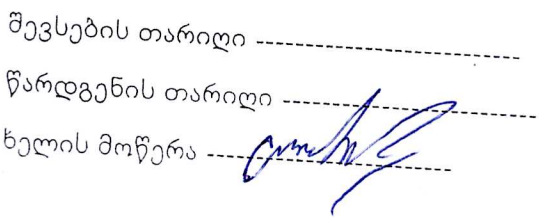 შევსების თარიღი ---------------------------
წარდგენის თარიღი --------------------------
ხელის მოწერა -------------------------